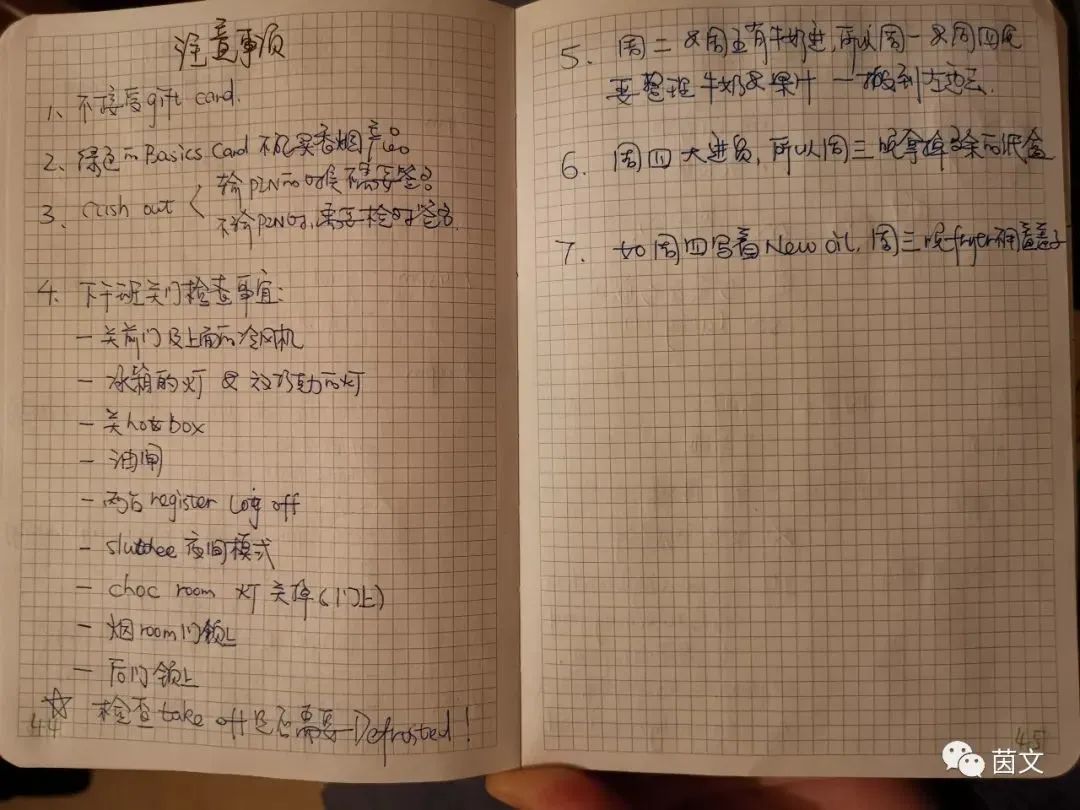 注意事项
1、不接受gift card.
2、绿色的Basics Card 不能买香烟产品
3、Cash out < 输PIN的时候不需要签名
不输PIN时,需要检query签名.
4、下午班关门检查事宜:
- 关前门及上面的冷风机
- 冰箱的灯 &
的灯
- 关hotbox
- 油闸
- 两台register Log off
- slushee 夜间模式
- choc room 灯关掉(门上)
- 烟room门锁上
- 后门锁上
☆ 检查take off是否需要Defrosted!
44
5. 周二&周五有牛奶进,所以周一&周四晚
要整理牛奶&果汁 一搬到左边.
6. 周四大进货,所以周三晚拿掉多余的纸盒
7. 如周四写着New oil,周三晚fryer不用盖盖子
45
茵文